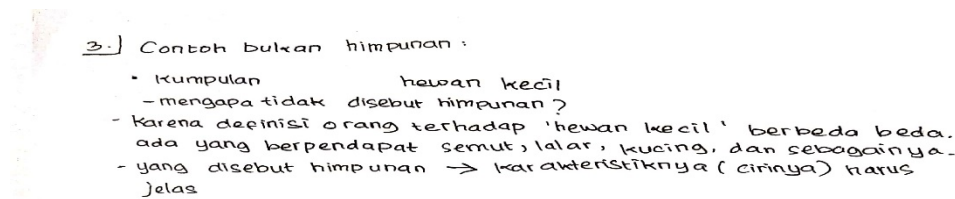 3.) Contoh bukan himpunan :
• Kumpulan hewan kecil
- mengapa tidak disebut himpunan ?
- Karena definisi orang terhadap 'hewan kecil' berbeda beda.
ada yang berpendapat semut, lalar, kucing, dan sebagainya.
- yang disebut himpunan → karakteristiknya ( cirinya) harus
jelas